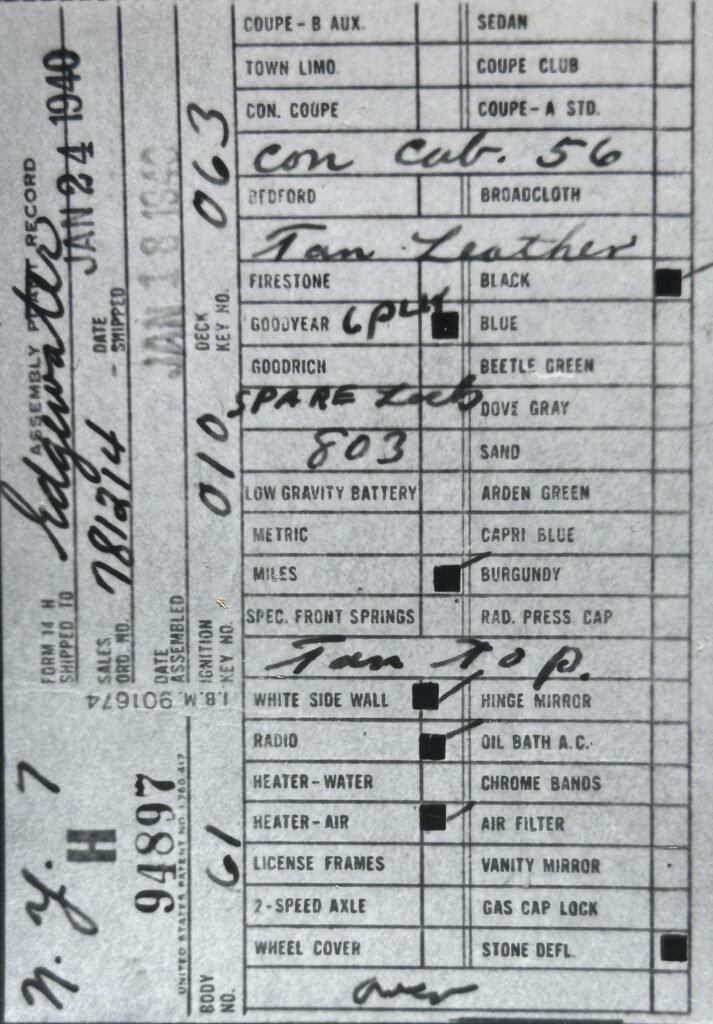 FORM 14 H ASSEMBLY PLANT RECORD
SHIPPED TO Edgewater
SALES ORD. NO. 781214 - DATE SHIPPED JAN 24 1940
DATE ASSEMBLED JAN 18 1940
IGNITION KEY NO. 010 DECK KEY NO. 063
I.B.M. 901674
N. Y. 7
H
94897
UNITED STATES PATENT NO. 1,780,417
BODY NO. 61
COUPE - B AUX. SEDAN
TOWN LIMO. COUPE CLUB
CON. COUPE COUPE - A STD.
Con Cab. 56
BEDFORD BROADCLOTH
Tan Leather
FIRESTONE BLACK
GOODYEAR 6 PLY BLUE
GOODRICH BEETLE GREEN
SPARE DOVE GRAY
803 SAND
LOW GRAVITY BATTERY ARDEN GREEN
METRIC CAPRI BLUE
MILES BURGUNDY
SPEC. FRONT SPRINGS RAD. PRESS. CAP
Tan top.
WHITE SIDE WALL HINGE MIRROR
RADIO OIL BATH A.C.
HEATER-WATER CHROME BANDS
HEATER-AIR AIR FILTER
LICENSE FRAMES VANITY MIRROR
2-SPEED AXLE GAS CAP LOCK
WHEEL COVER STONE DEFL.
over